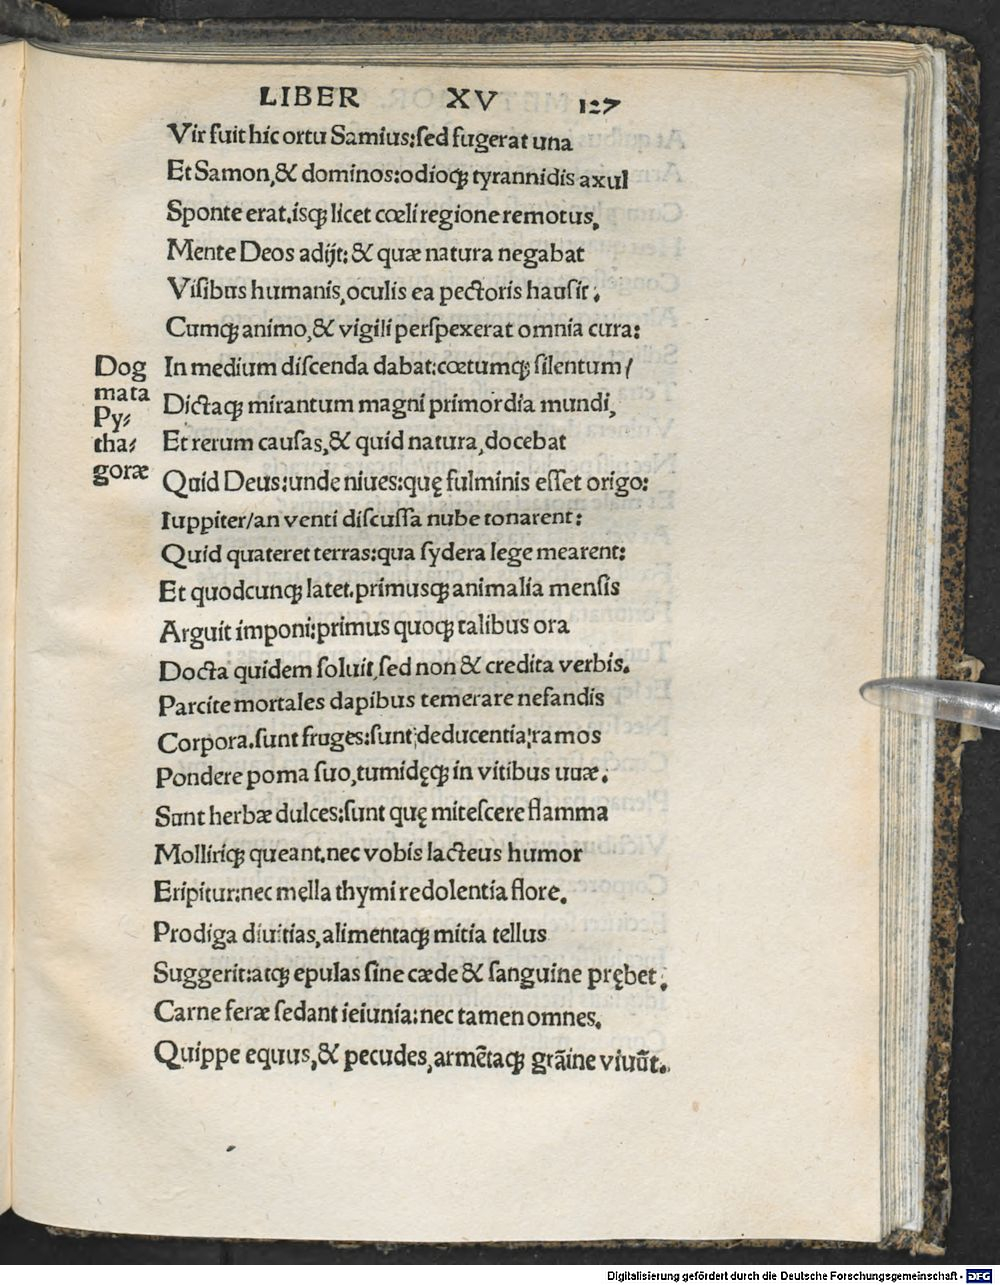 LIBER XV 127
Vir fuit hic ortu Samius:sed fugerat una
Et Samon,& dominos:odioqꝫ tyrannidis axul
Sponte erat.isqꝫ licet cœli regione remotus,
Mente Deos adijt:& quæ natura negabat
Visibus humanis,oculis ea pectoris hausit:
Cumqꝫ animo,& vigili perspexerat omnia cura:
In medium discenda dabat:cœtumqꝫ silentum/
Dictaqꝫ mirantum magni primordia mundi,
Et rerum causas,& quid natura,docebat
Quid Deus:unde niues:quę fulminis esset origo:
Iuppiter/an venti discussa nube tonarent:
Quid quateret terras:qua sydera lege mearent:
Et quodcunqꝫ latet.primusqꝫ animalia mensis
Arguit imponi:primus quoqꝫ talibus ora
Docta quidem soluit,sed non & credita verbis.
Parcite mortales dapibus temerare nefandis
Corpora.sunt fruges:sunt deducentia ramos
Pondere poma suo,tumidęqꝫ in vitibus uuæ.
Sunt herbæ dulces:sunt quę mitescere flamma
Molliriqꝫ queant.nec vobis lacteus humor
Eripitur:nec mella thymi redolentia flore.
Prodiga diuitias,alimentaqꝫ mitia tellus
Suggerit:atqꝫ epulas sine cæde & sanguine prębet:
Carne feræ sedant ieiunia:nec tamen omnes.
Quippe equus,& pecudes,armētaqꝫ grāine viuūt.
Dog
mata
Py⸗
tha⸗
goræ
Digitalisierung gefördert durch die Deutsche Forschungsgemeinschaft - DFG